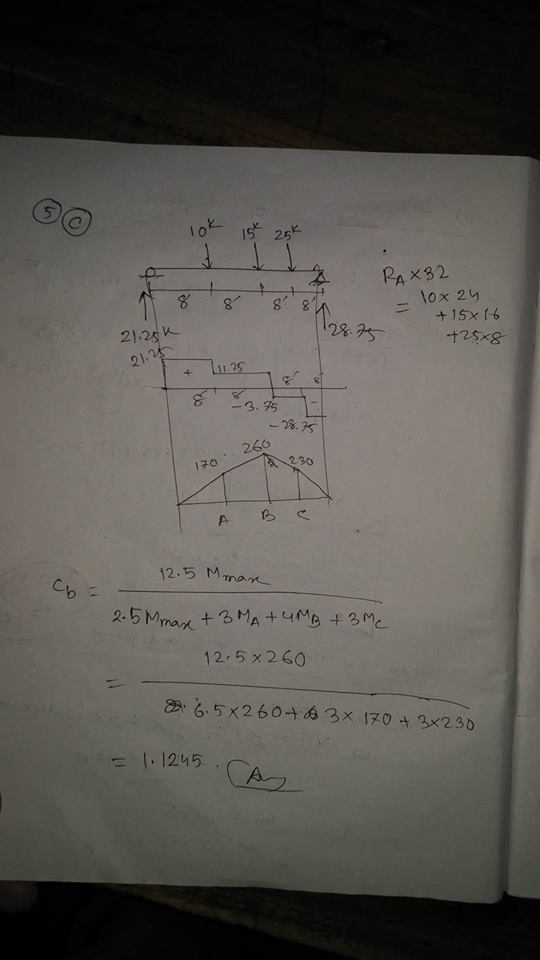 5 C
10K 15K 25K
8' 8' 8' 8'
21.25K 28.75
RA × 32
= 10 × 24
+ 15 × 16
+ 25 × 8
21.25
+ 11.25 8' 8'
8' 8' -3.75 -
-28.75
260
170 230
A B C
Cb = 12.5 Mmax
2.5 Mmax + 3 MA + 4 MB + 3 MC
= 12.5 × 260
6.5 × 260 + 3 × 170 + 3 × 230
= 1.1245 .